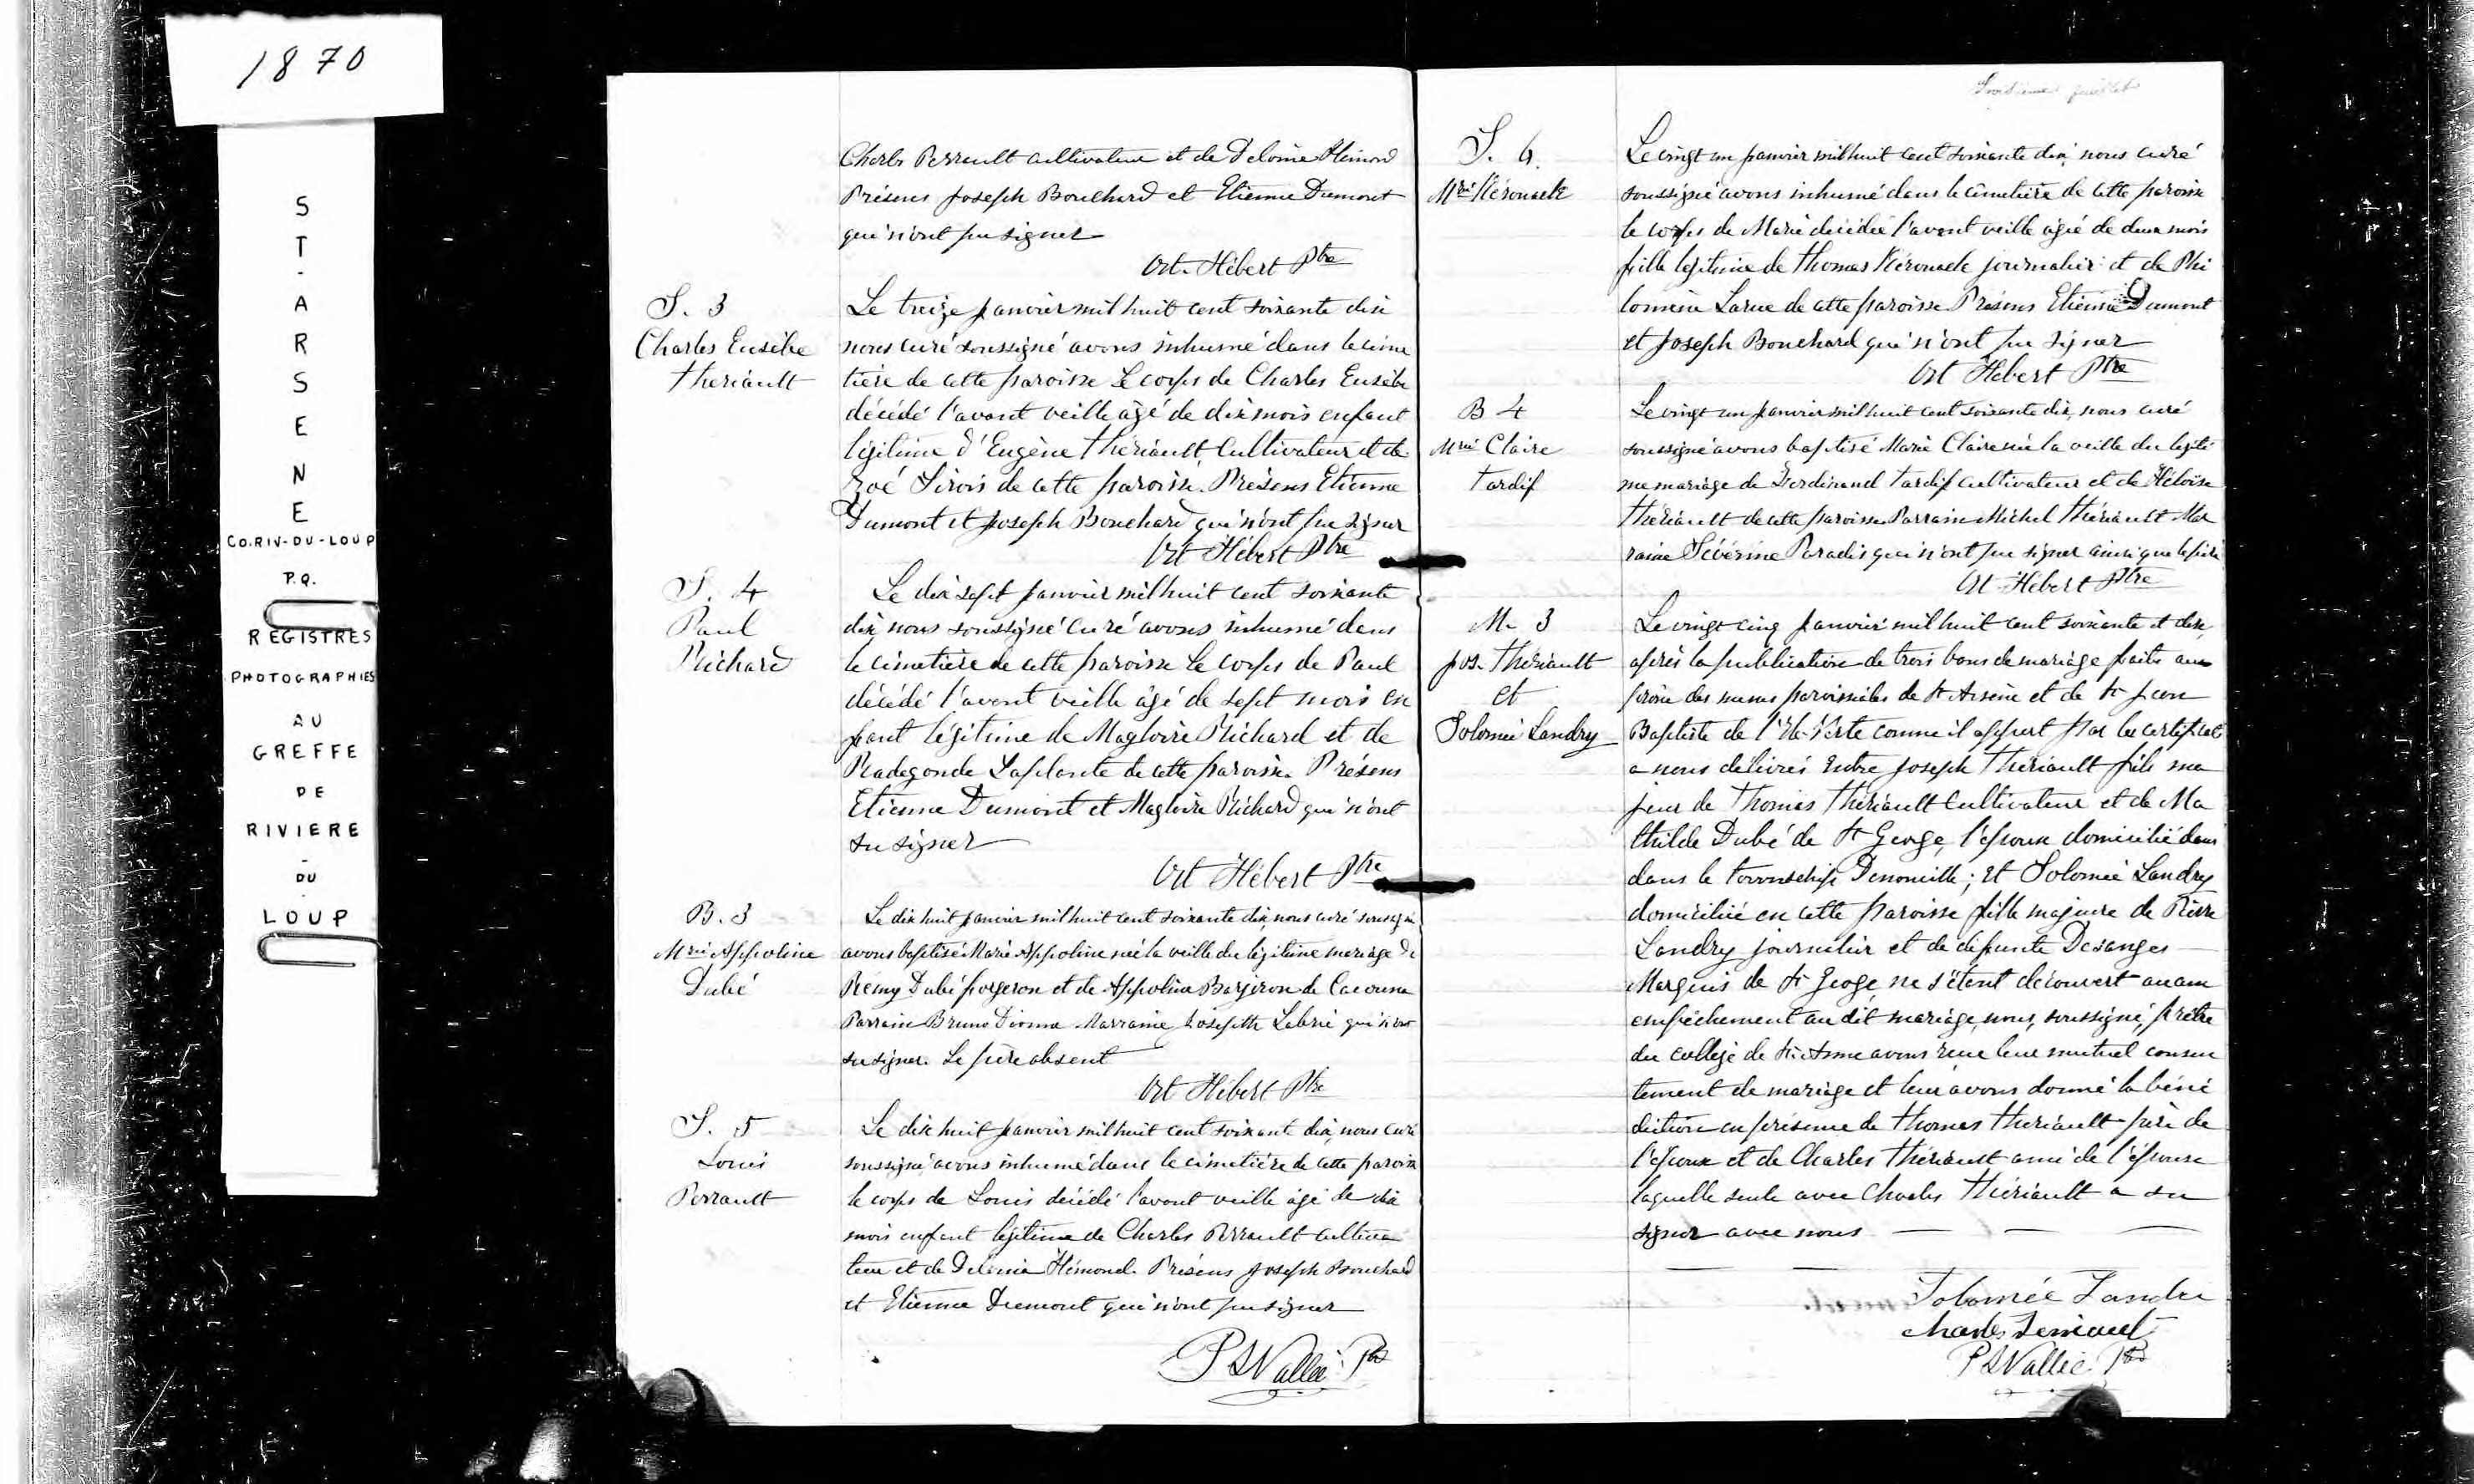 1870
ST-ARSENE
CO.RIV-DU-LOUP
P.Q.
REGISTRES
PHOTOGRAPHIES
AU
GREFFE
DE
RIVIERE
-
DU
-
LOUP
Charles Perrault cultivateur et de Delvine Hémond
Présens Joseph Bouchard et Etienne Dumont
qui n'ont pu signer
Ort. Hébert Ptre
S. 3
Charles Eusèbe
Theriault
Le treize janvier mil huit cent soixante dix
nous curé soussigné avons inhumé dans le cime
tière de cette paroisse le corps de Charles Eusèbe
décédé l'avant veille âgé de dix mois enfant
légitime d'Eugène Thériault, Cultivateur et de
Zoé Sirois de cette paroisse. Présens Etienne
Dumont et Joseph Bouchard qui n'ont pu signer
Ort Hébert Ptre
S. 4
Paul
Richard
Le dix sept janvier mil huit cent soixante
dix, nous soussigné curé avons inhumé dans
le cimetière de cette paroisse le corps de Paul
décédé l'avant veille âgé de sept mois en
fant légitime de Magloire Richard et de
Radegonde Laplante de cette paroisse. Présens
Etienne Dumont et Magloire Richard qui n'ont
su signer
Ort Hébert Ptre
B. 3
Mrie Appoline
Dubé
Le dix huit janvier mil huit cent soixante dix, nous curé soussigné
avons baptisé Marie Appoline née la veille du légitime mariage de
Rémy Dubé forgeron et de Appoline Bargeron de Cacouna
Parrain Bruno Dionne Marraine Josephte Labrie qui n'ont
su signer. Le père absent
Ort Hébert Ptre
S. 5
Louis
Perrault
Le dix huit janvier mil huit cent soixante dix, nous curé
soussigné avons inhumé dans le cimetière de cette paroisse
le corps de Louis décédé l'avant veille âgé de dix
mois enfant légitime de Charles Perrault cultiva
teur et de Delvina Hémond. Présens Joseph Bouchard
et Etienne Dumont qui n'ont pu signer
P S Vallée Ptre
feuillet
S. 6.
Mrie Kérouack
Le vingt un janvier mil huit cent soixante dix, nous curé
soussigné avons inhumé dans le cimetière de cette paroisse
le corps de Marie décédée l'avant veille agée de deux mois
fille légitime de Thomas Kérouack journalier et de Phi
lomène Larue de cette paroisse Présens Etienne Dumont
et Joseph Bouchard qui n'ont pu signer
Ort Hébert Ptre
B 4
Mrie Claire
Tardif
Le vingt un janvier mil huit cent soixante dix, nous curé
soussigné avons baptisé Marie Claire née la veille du légiti
me mariage de Ferdinand Tardif cultivateur et de Héloïse
Thériault de cette paroisse. Parrain Michel Thériault Mar
raine Sévérine Paradis qui n'ont pu signer ainsi que le père
Ort Hébert Ptre
M. 3
Jos. Theriault
et
Solomée Landry
Le vingt cinq janvier mil huit cent soixante et dix,
après la publication de trois bans de mariage faite aux
prône des messes paroissiales de St Arsène et de St Jean
Baptiste de l'Ile-Verte comme il appert par les certificat
a nous délivrés Entre Joseph Theriault fils ma
jeur de Thomas Theriault Cultivateur et de Ma
thilde Dubé de St George, l'époux domicilié dans
dans le township Denonville ; et Solomée Landry
domiciliée en cette paroisse fille majeure de Pierre
Landry journalier et de défunte Desanges
Marquis de St Geoge, ne s'étant découvert aucun
empêchement au dit mariage, nous, soussigné, prêtre
du collège de Ste Anne avons reçu leur mutuel consen
tement de mariage et leur avons donné la béné
diction en présence de Thomas Theriault père de
l'époux et de Charles Theriault ami de l'épouse
laquelle seule avec Charles Thériault a su
signer avec nous
Solomée Landri
Charles Terriault
P S Vallée Ptre